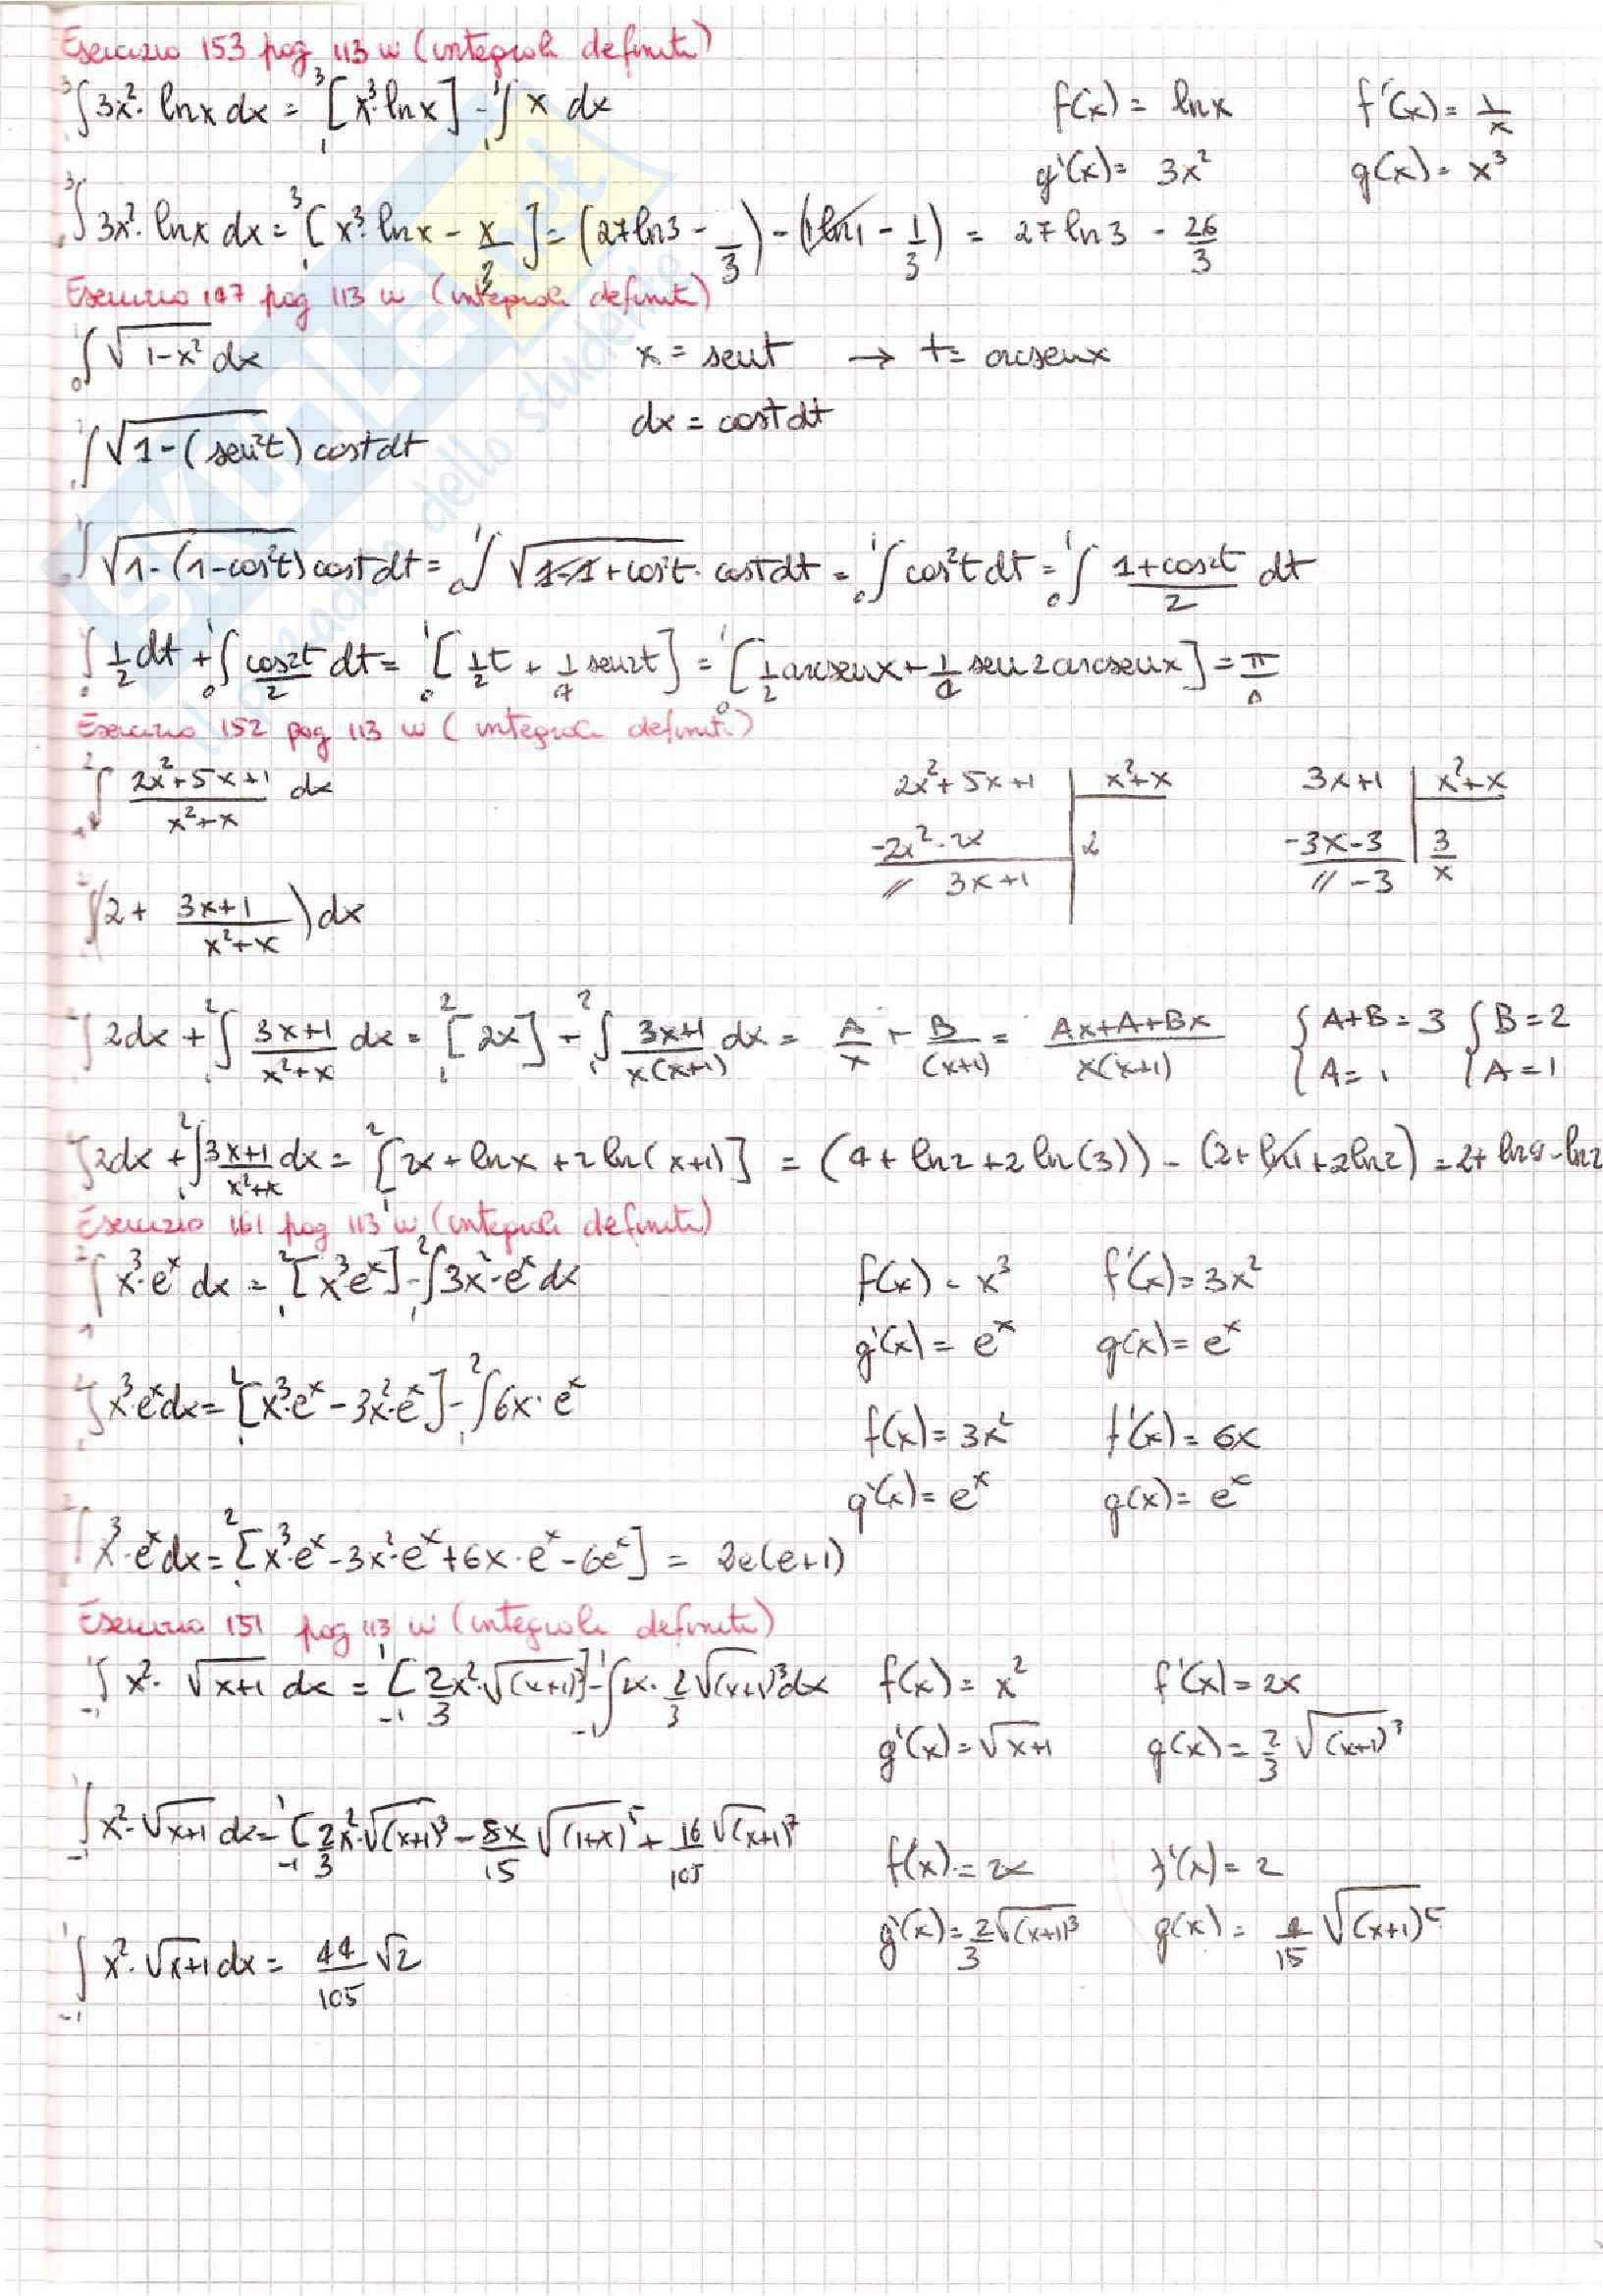 Esercizio 153 pag 113 w (integrali definiti)
³₁∫ 3x²· lnx dx = ³₁[x³·lnx] - ³₁∫ x dx f(x) = lnx f'(x) = 1/x
g'(x) = 3x² g(x) = x³
³₁∫ 3x²· lnx dx = ³₁[x³·lnx - x/3] = (27ln3 - /3) - (1ln1 - 1/3) = 27 ln3 - 26/3
Esercizio 147 pag 113 w (integrali definiti)
¹₀∫ √(1-x²) dx x = sent → t = arcsenx
dx = cost dt
∫ √(1-(sen²t)) cost dt
∫ √(1-(1-cos²t)) cost dt = ¹₀∫ √(1-1+cos²t) · cost dt = ¹₀∫ cos²t dt = ¹₀∫ (1+cos2t)/2 dt
₀∫ 1/2 dt + ¹₀∫ cos2t/2 dt = ¹₀[1/2 t + 1/4 sen2t] = ¹₀[1/2 arcsenx + 1/4 sen 2 arcsenx] = π/4
Esercizio 152 pag 113 w (integrali definiti)
²₁∫ (2x²+5x+1)/(x²+x) dx 2x²+5x+1 | x²+x 3x+1 | x²+x
-2x²-2x | 2 -3x-3 | 3/x
// 3x+1 // -3
∫(2 + (3x+1)/(x²+x)) dx
∫ 2dx + ²₁∫ (3x+1)/(x²+x) dx = ²₁[2x] + ²₁∫ (3x+1)/(x(x+1)) dx = A/x + B/(x+1) = (Ax+A+Bx)/(x(x+1)) { A+B = 3 A = 1 { B = 2 A = 1
∫ 2dx + ²₁∫ (3x+1)/(x²+x) dx = ²₁[2x + lnx + 2 ln(x+1)] = (4 + ln2 + 2 ln(3)) - (2 + ln1 + 2ln2) = 2 + ln9 - ln2
Esercizio 161 pag 113 w (integrali definiti)
²₁∫ x³·eˣ dx = ²₁[x³eˣ] - ²₁∫ 3x²·eˣ dx f(x) = x³ f'(x) = 3x²
g'(x) = eˣ g(x) = eˣ
²₁∫ x³·eˣ dx = ²₁[x³·eˣ - 3x²·eˣ] - ²₁∫ 6x·eˣ
f(x) = 3x² f'(x) = 6x
g'(x) = eˣ g(x) = eˣ
∫ x³·eˣ dx = ²₁[x³·eˣ - 3x²·eˣ + 6x·eˣ - 6eˣ] = 2e(e+1)
Esercizio 151 pag 113 w (integrali definiti)
¹₋₁∫ x²·√(x+1) dx = ¹₋₁[2/3 x²·√(x+1)³] - ¹₋₁∫ 2x · 2/3 √(x+1)³ dx f(x) = x² f'(x) = 2x
g'(x) = √(x+1) g(x) = 2/3 √(x+1)³
¹₋₁∫ x²·√(x+1) dx = ¹₋₁[2/3 x²·√(x+1)³ - 8x/15 √(1+x)⁵ + 16/105 √(x+1)⁷
f(x) = 2x f'(x) = 2
g'(x) = 2/3 √(x+1)³ g(x) = 4/15 √(x+1)⁵
¹₋₁∫ x²·√(x+1) dx = 44/105 √2
SKUOLA.net
dello studente